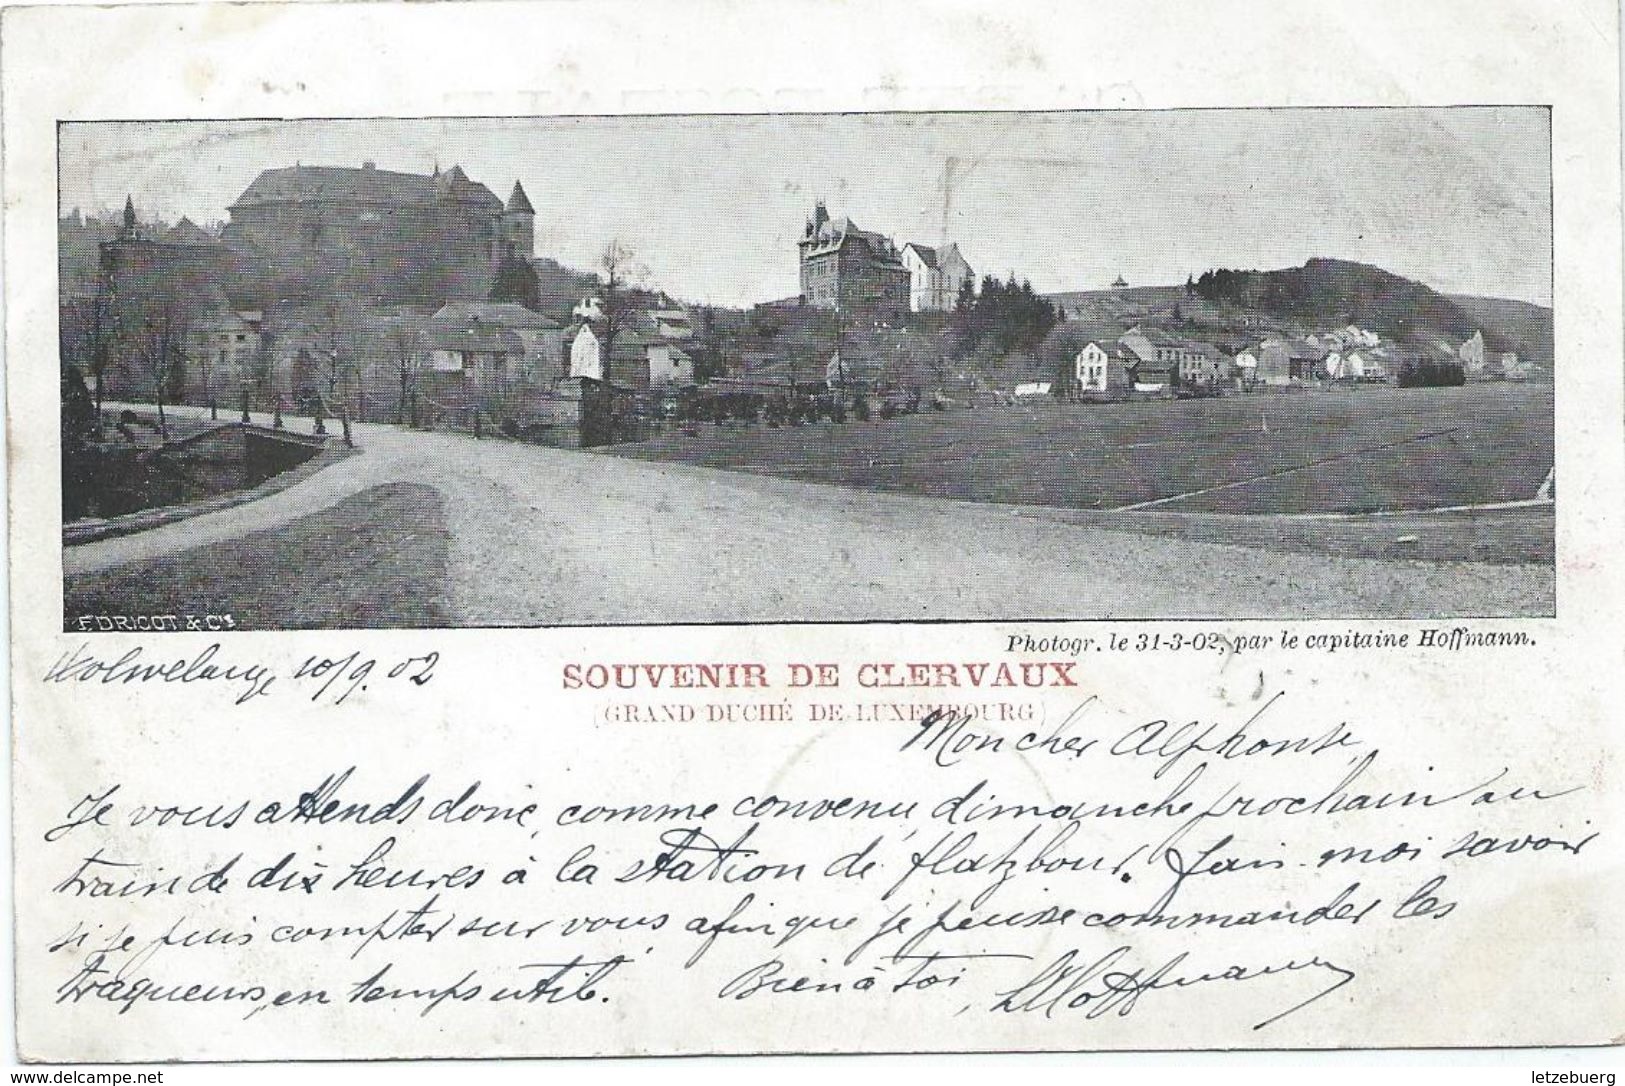 F. DRICOT & Cie
Photogr. le 31-3-02, par le capitaine Hoffmann.
Wolwelange, 10/9.02
SOUVENIR DE CLERVAUX
(GRAND DUCHÉ DE LUXEMBOURG)
Mon cher Alphonse,
Je vous attends donc, comme convenu, dimanche prochain au
train de dix heures à la station de flatzbour. fais-moi savoir
si je puis compter sur vous afin que je puisse commander les
traqueurs, en temps utile. Bien à toi, Hoffmann
www.delcampe.net
letzebuerg